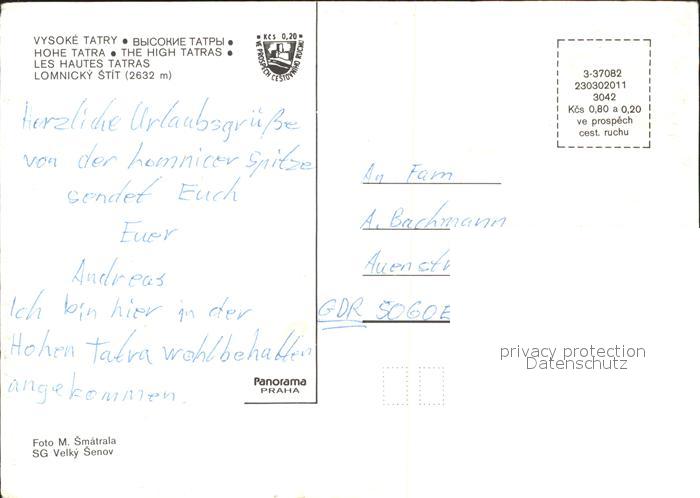 VYSOKÉ TATRY • ВЫСОКИЕ ТАТРЫ •
HOHE TATRA • THE HIGH TATRAS •
LES HAUTES TATRAS
LOMNICKÝ ŠTÍT (2632 m)
• Kčs 0,20 •
VE PROSPĚCH CESTOVNÍHO RUCHU
3-37082
230302011
3042
Kčs 0,80 a 0,20
ve prospěch
cest. ruchu
Herzliche Urlaubsgrüße
von der Lomnicer Spitze
sendet Euch
Euer
Andreas
Ich bin hier in der
Hohen Tatra wohlbehalten
angekommen.
An Fam
A. Bachmann
Auenstr
GDR 5060E
privacy protection
Datenschutz
Panorama
PRAHA
Foto M. Šmátrala
SG Velký Šenov